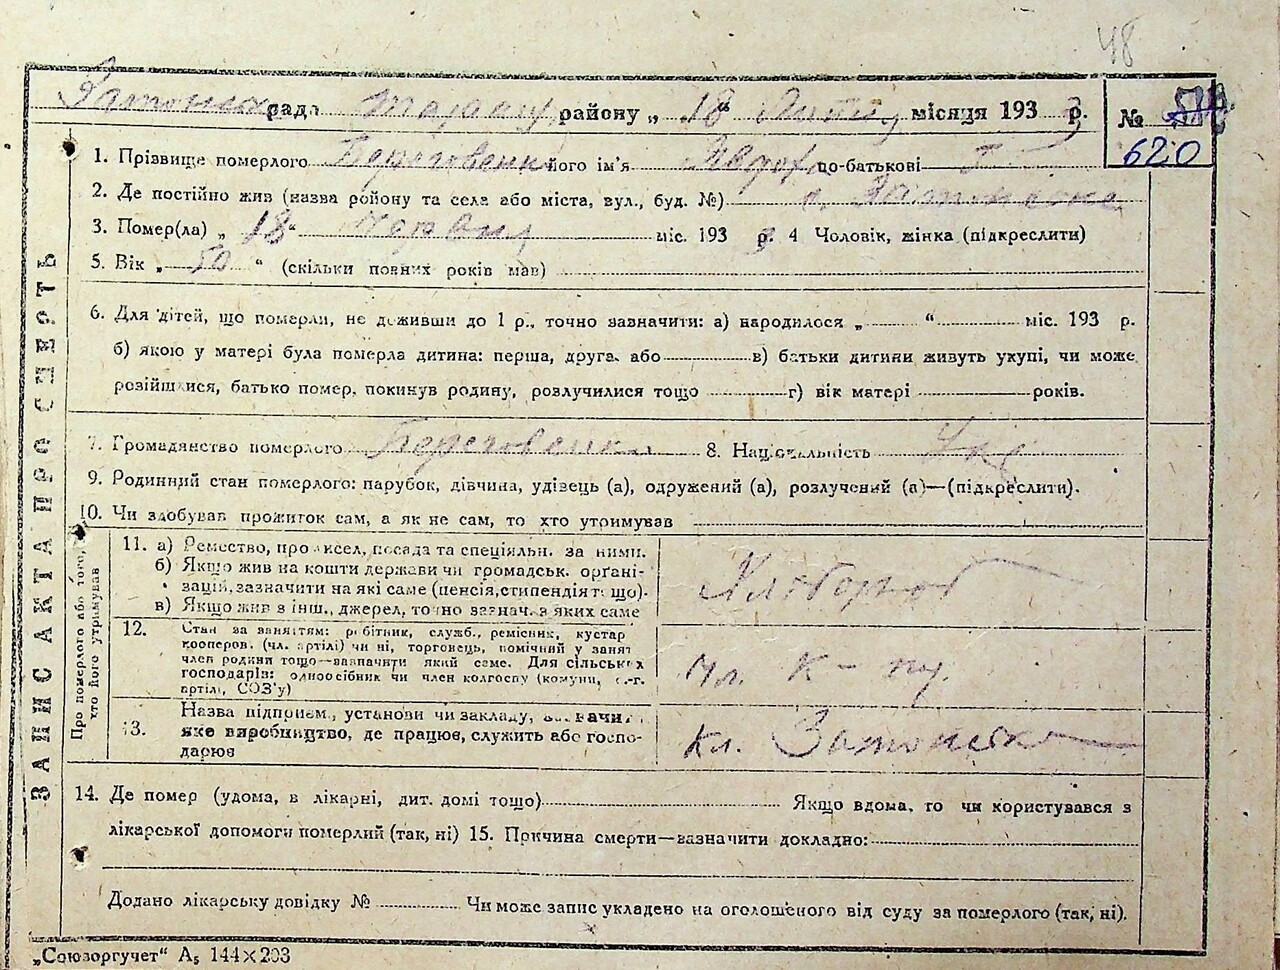 48
рада району „ 18 “ місяця 193 3 р. №
620
1. Прізвище померлого його ім'я Явдоха по-батькові
2. Де постійно жив (назва району та села або міста, вул., буд. №)
3. Помер(ла) „ 18 “ Червня міс. 193 3 р. 4 Чоловік, жінка (підкреслити)
5. Вік „ 50 “ (скільки повних років мав)
6. Для дітей, що померли, не доживши до 1 р., точно зазначити: а) народилося „ “ міс. 193 р.
б) якою у матері була померла дитина: перша, друга або в) батьки дитини живуть укупі, чи може
розійшлися, батько помер, покинув родину, розлучилися тощо г) вік матері років.
7. Громадянство померлого 8. Національність Укр
9. Родинний стан померлого: парубок, дівчина, удівець (а), одружений (а), розлучений (а)—(підкреслити).
10. Чи здобував прожиток сам, а як не сам, то хто утримував
ЗАПИС АКТА ПРО СМЕРТЬ
Про померлого або того, хто його утримував
11. а) Ремество, промисел, посада та спеціяльн. за ними.
б) Якщо жив на кошти держави чи громадськ. орґані-
зацій, зазначити на які саме (пенсія, стипендія тощо).
в) Якщо жив з інш. джерел, точно зазнач. з яких саме
Хлібороб
12. Стан за заняттям: робітник, служб., ремісник, кустар
кооперов. (чл. артілі) чи ні, торговець, помічний у занят
член родини тощо—зазначити який саме. Для сільських
господарів: одноосібник чи член колгоспу (комуни, с.-г.
артілі, СОЗ'у)
13. Назва підприєм., установи чи закладу, зазначити,
яке виробництво, де працює, служить або госпо-
дарює
14. Де помер (удома, в лікарні, дит. домі тощо) Якщо вдома, то чи користувався з
лікарської допомоги померлий (так, ні) 15. Причина смерти—зазначити докладно:
Додано лікарську довідку № Чи може запис укладено на оголошеного від суду за померлого (так, ні).
„Союзоргучет“ А₅ 144×203